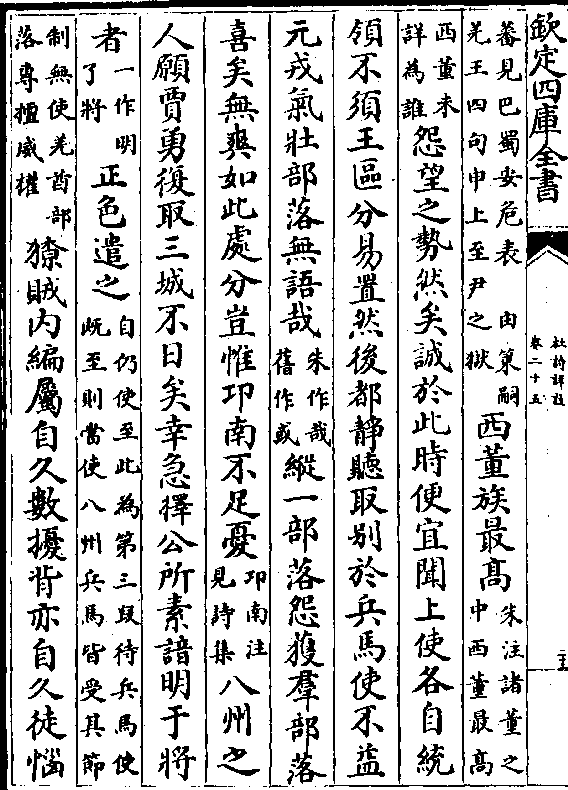 欽定四庫全書
杜詩詳註
卷二十五
蕃見巴蜀安危表 由策嗣
羌王四句申上至尹之獄
西董族最髙
朱注諸董之
中西董最髙
西董未
詳為誰
怨望之勢然矣誠於此時便宜聞上使各自統
領不須王區分易置然後都靜聽取别於兵馬使不益
元戎氣壯部落無語哉
朱作哉
舊作或
縱一部落怨獲羣部落
喜矣無爽如此處分豈惟卭南不足憂
卭南注
見詩集
八州之
人願賈勇復取三城不日矣幸急擇公所素諳明于將
者
一作明
了將
正色遣之
自仍使至此為第三段待兵馬使
既至則當使八州兵馬皆受其節
制無使羌酋部
落專擅威權
獠賊内編屬自久數擾背亦自久徒惱